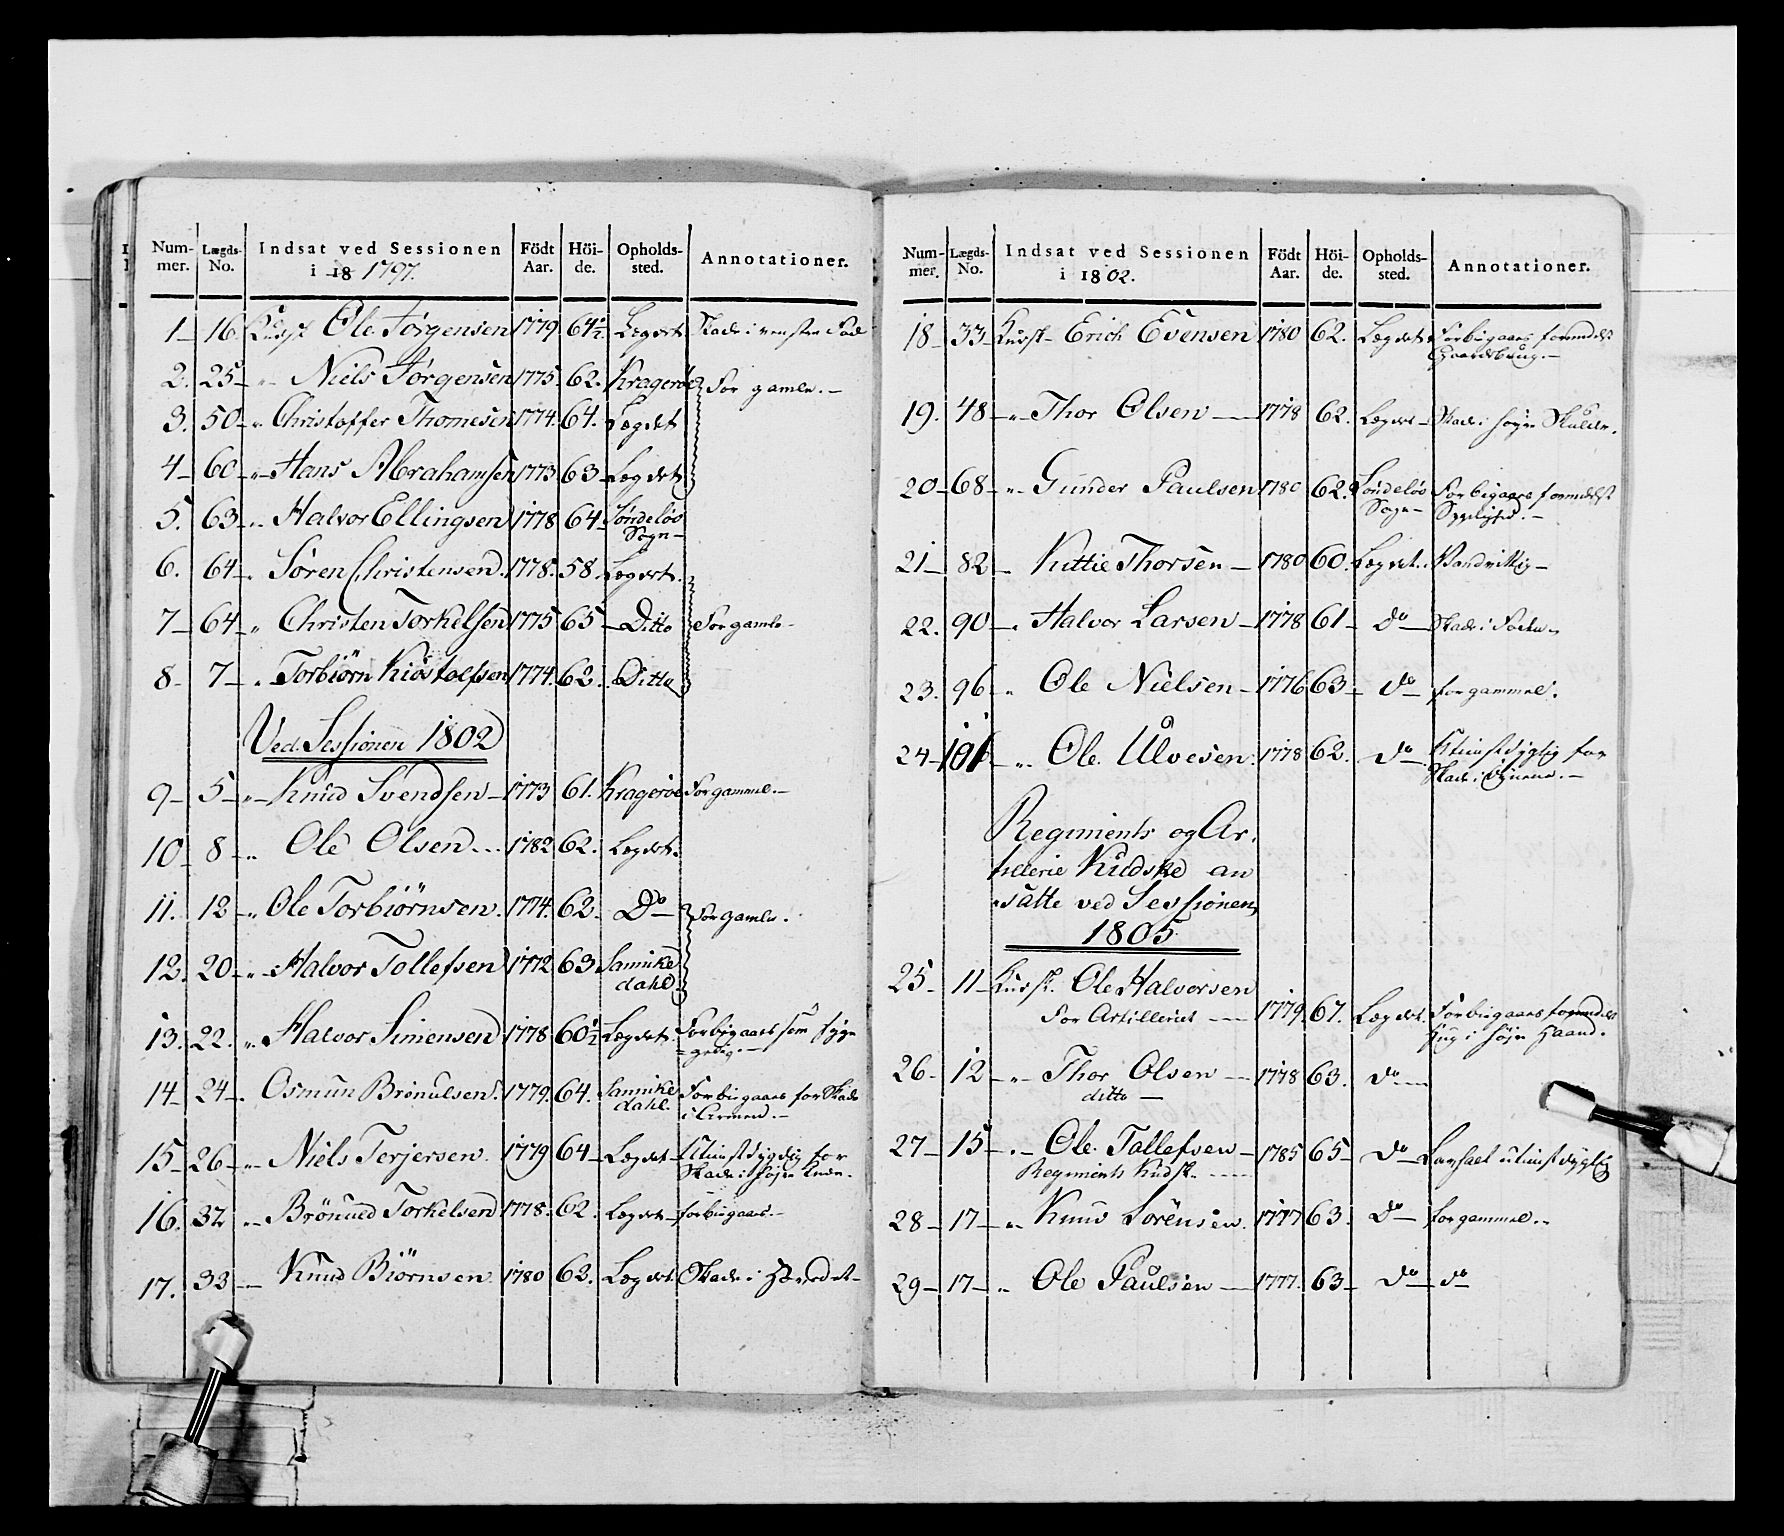 Num- mer. Lægds- No. Indsat ved Sessionen i 18 1797. Födt Aar. Höi- de. Opholds- sted. Annotationer.
1 16 Kudsk Ole Jørgensen 1779 64½ Lægdet Skade i venstre Fod
2. 25 " Niels Jørgensen 1775 62. Kragerøe For gamle.
3. 50 " Christoffer Thomesen 1774. 64. Lægdet
4 60 " Hans Abrahamsen 1773 63 Lægdet
5. 63 " Halvor Ellingsen 1778 64 Söndeløv Sogn
6. 64 " Søren Christensen. 1778. 58. Lægdet.
7 64 " Christen Torkelsen 1775 65 Ditto For gamle
8 7 " Torbiörn Kiöstolfsen 1774. 62. Ditto
Ved Sessionen 1802
9 5 " Knud Svendsen 1773 61. Kragerøe For gammel.
10 8 " Ole Olsen 1782 62. Lægdet.
11. 12 " Ole Torbiörnsen. 1774. 62. Do For gamle.
12. 20 " Halvor Tollefsen 1772 63 Sannike dahl
13. 22. " Halvor Simensen 1778 60½ Lægdet. Forbigaaes som
14 24 Osmun 1779. 64. Sannike dahl. Forbigaaes for Skade i Armen.
15 26 " Niels Terjersen. 1779 64 Lægdet Utienstdygtig for Skade i højre Knæe.
16. 32 " Brönued Torkelsen 1778. 62. Lægdet forbigaaes.
17. 33 Knud Biörnsen 1780 62. Lægdet. Skade i Hovedet
Num- mer. Lægds- No. Indsat ved Sessionen i 1802. Födt Aar. Höi- de. Opholds- sted. Annotationer.
18 33 Kudsk Erich Evensen 1780 62. Lægdet. Forbigaaes formedelst Gaardsbrug.
19. 48 " Thor Olsen 1778 62. Lægdet Skade i højre Skulder.
20 68 " Gunder Paulsen 1780 62. Söndeløv Sogn Forbigaaes formedelst Sygelighed.
21 82 Kittie Thorsen 1780 60. Lægdet. Vandvittig
22. 90 " Halvor Larsen 1778 61 do Skade i Foden
23. 96 " Ole Nielsen 1776 63 do for gammel.
24 101 " Ole Ulvesen. 1778 62. do Utienstdygtig for Skade i Øjnene.
Regiments og Ar-
tillerie Kudske an
satte ved Sessionen
1805
25 11 Kudsk. Ole Halvorsen
For Artilleriet 1779. 67. Lægdet. Forbigaaes formedelst i højre Haand.
26 12 " Thor Olsen 1778 63. do
ditto
27 15 Ole Tallefsen 1785 65 do utienstdygtig
Regiments Kudsk
28 17 " Knud Sörensen. 1777 63. do for gammel.
29 17 " Ole Paulsen 1777. 63 do do